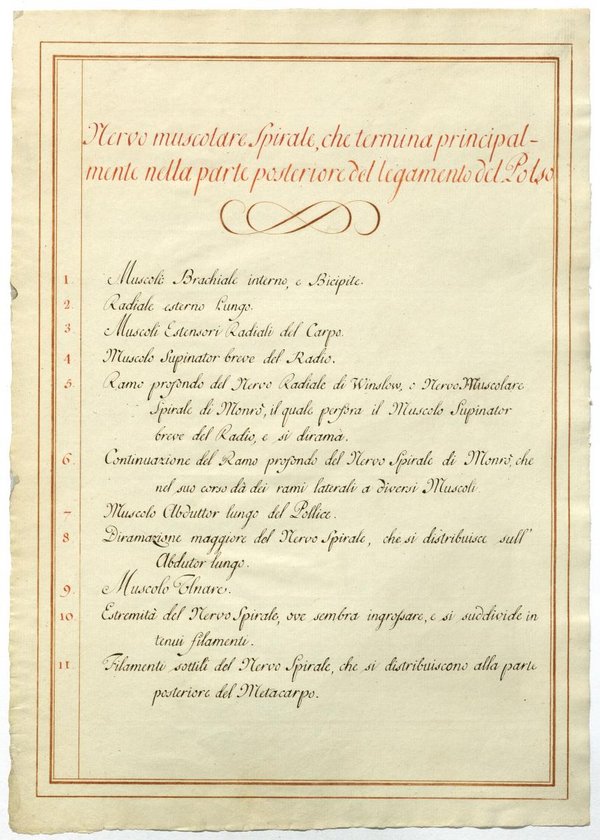 Nervo muscolare Spirale, che termina principal-
mente nella parte posteriore del legamento del Polso
1. Muscoli Brachiale interno, e Bicipite.
2. Radiale esterno Lungo.
3. Muscoli Estensori Radiali del Carpo.
4 Muscolo Supinator breve del Radio.
5. Ramo profondo del Nervo Radiale di Winslow, o Nervo Muscolare
Spirale di Monrò, il quale perfora il Muscolo Supinator
breve del Radio, e si dirama.
6. Continuazione del Ramo profondo del Nervo Spirale di Monrò, che
nel suo corso dà dei rami laterali a diversi Muscoli.
7 Muscolo Abduttor lungo del Pollice.
8 Diramazione maggiore del Nervo Spirale, che si distribuisce sull'
Abdutor lungo.
9. Muscolo Ulnare.
10. Estremità del Nervo Spirale, ove sembra ingrossare, e si suddivide in
tenui filamenti.
11 Filamenti sottili del Nervo Spirale, che si distribuiscono alla parte
posteriore del Metacarpo.